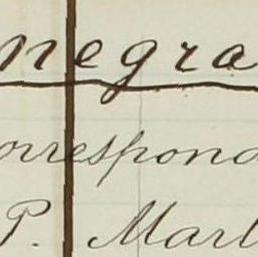 negra
orrespond
P. Marl